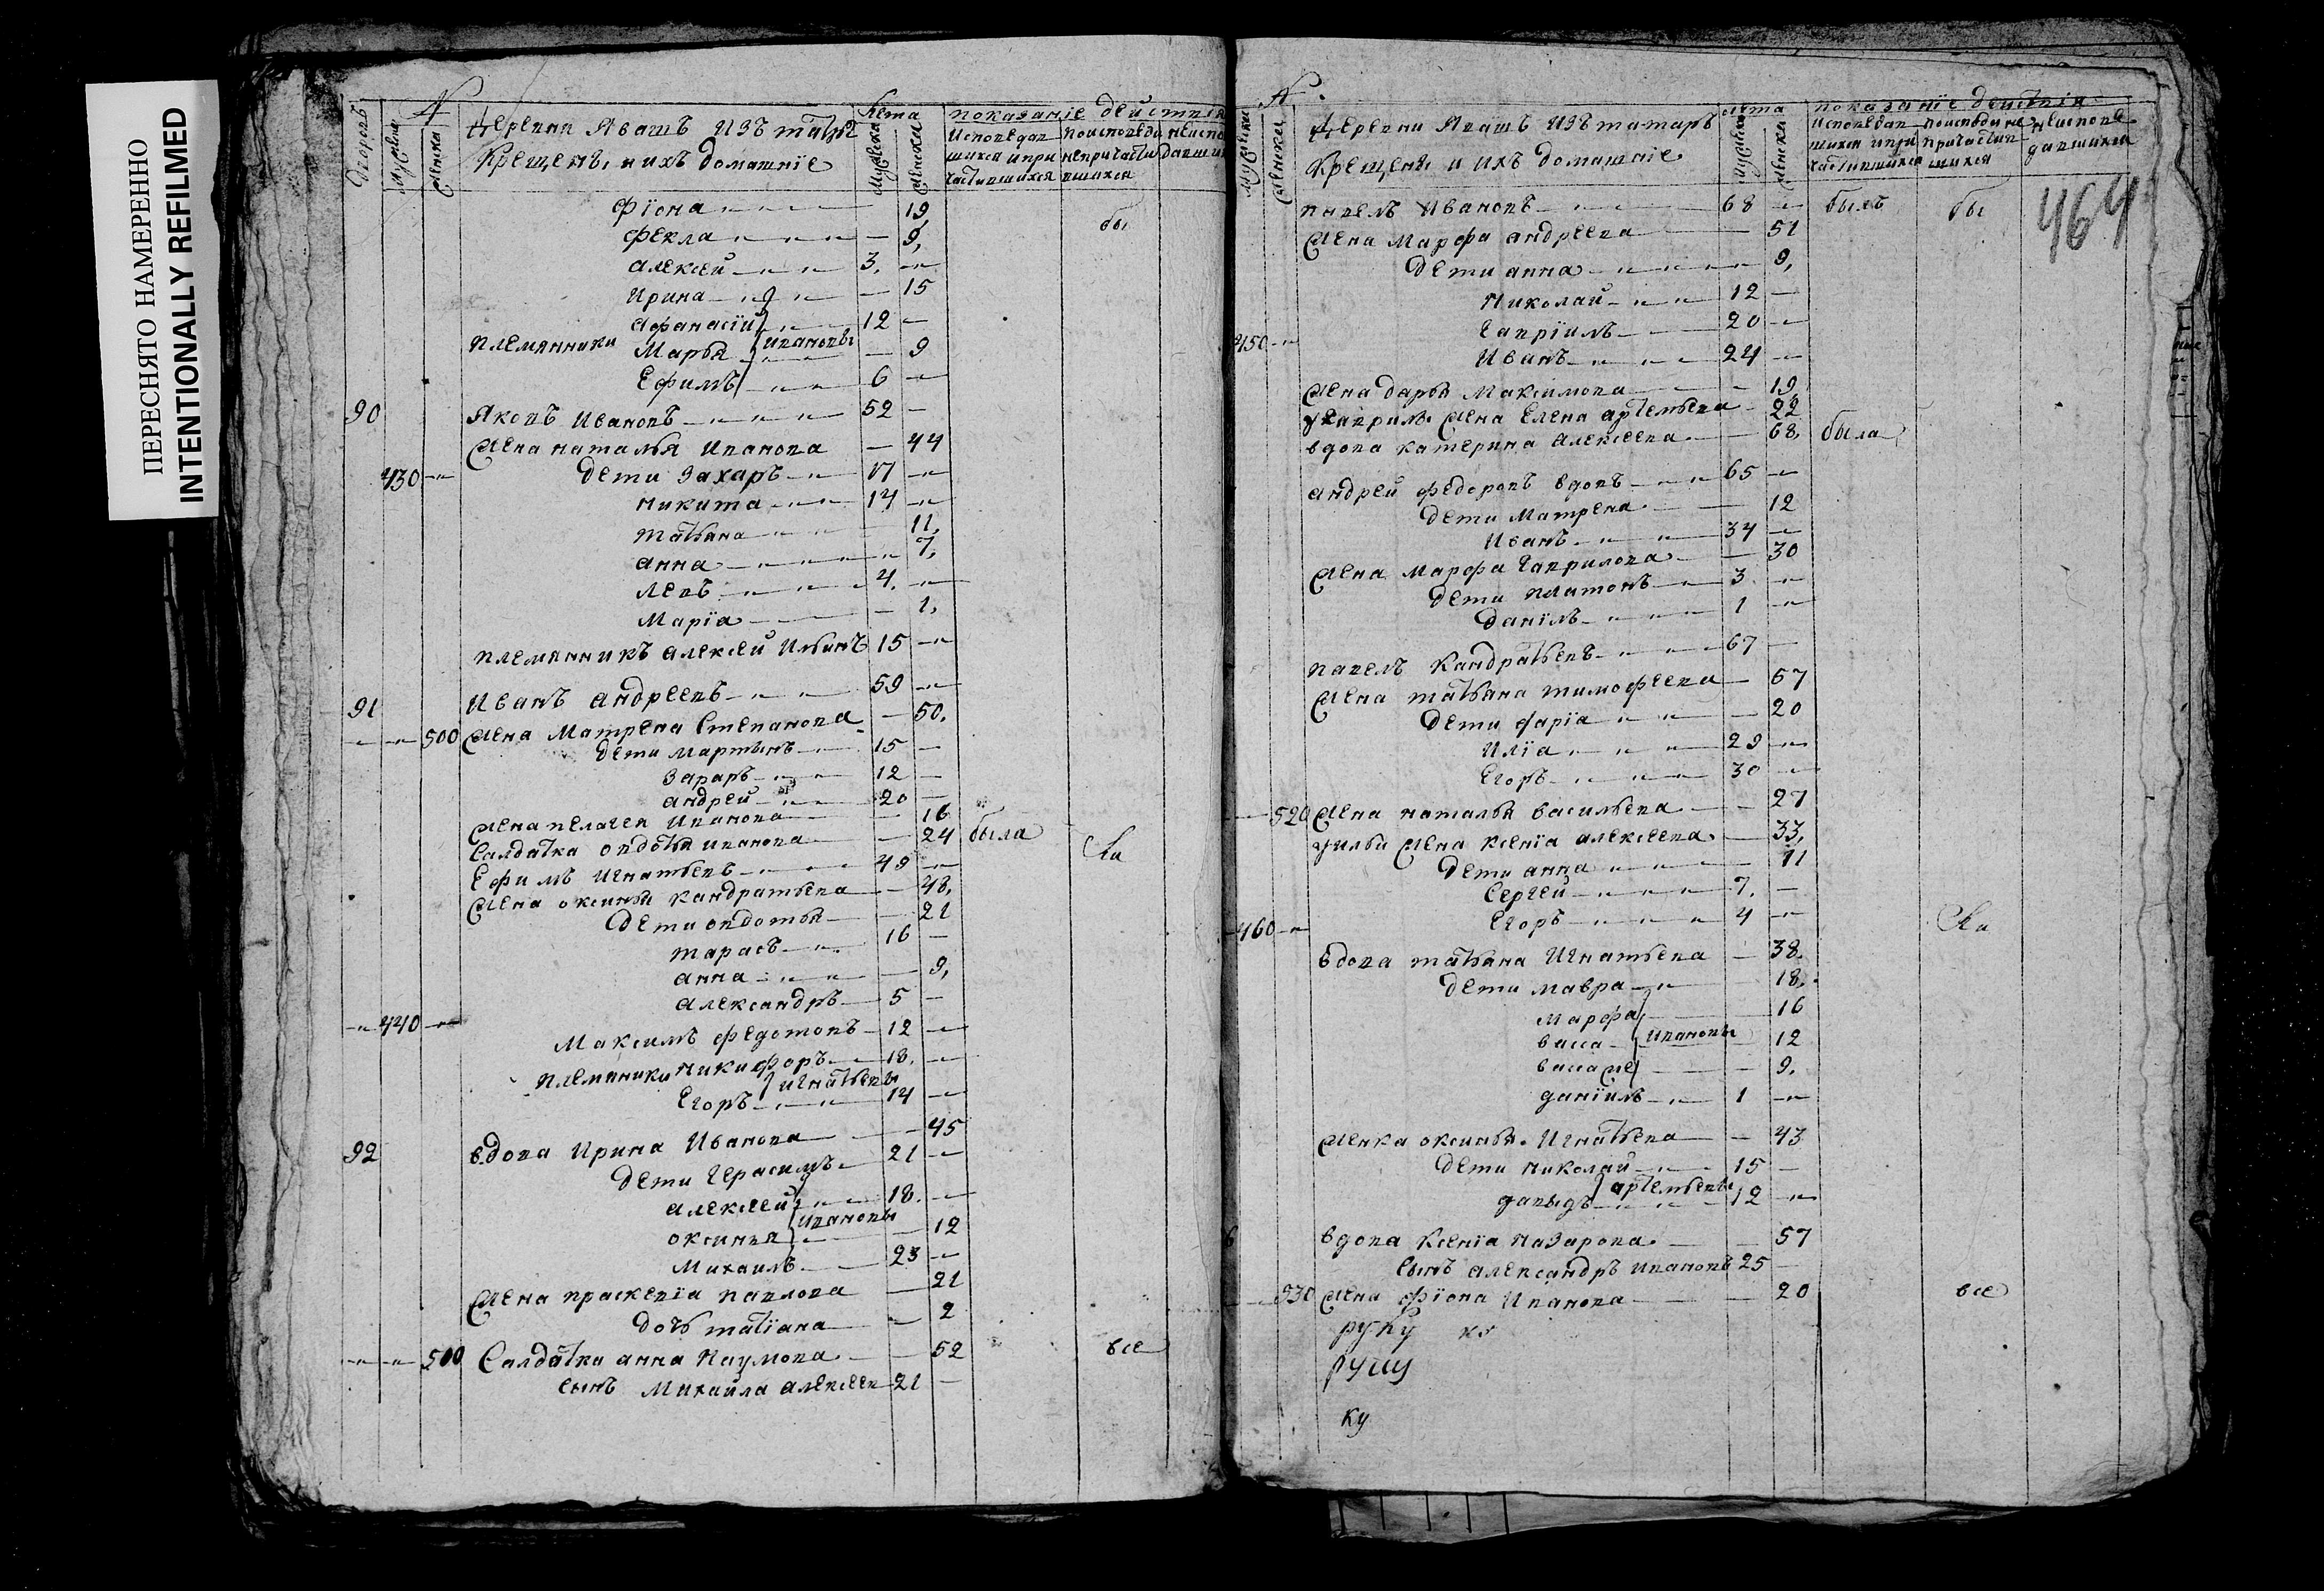 ПЕРЕСНЯТО НАМЕРЕННО
INTENTIONALLY REFILMED
дворовъ
мужеска
женска
N
деревни Явашъ изъ татаръ
лета
показанiе действiя
крещенъ, и ихъ домашнiе
мужеска
женски
исповедав
шихся и при
частившихся
поисповеди
непричасти
вшихся
неиспо
давши
фiона 19
бы
фекла 9,
алексеи 3.
ирина 15
афанасiи 12
племянники Марья ивановы 9
ефимъ 6
90 Яковъ Ивановъ 52
жена наталья иванова 44
430 дети захаръ 17
никита 14
татьяна 11,
анна 7,
левъ 4.
марiа 1,
племянникъ алексеи ильинъ 15
91 Иванъ андреевъ 59
500 жена Матрена Степанова 50.
дети мартынъ 15
зараръ 12
андреи 20
жена пелагея иванова 16
салдатка овдотья иванова 24 была
ка
ефимъ игнатьевъ 49
жена оксинья кандратьева 48,
дети овдотья 21
тарасъ 16
анна 9,
александръ 5
440
Максимъ федотовъ 12
племяники никифоръ 18.
игнатьевы
егоръ 14
92 вдова Ирина Иванова 45
дети герасимъ 21
алексеи 18.
ивановы
оксинья 12
михаилъ 23
жена прасковiа павлова 21
дочь татiана 2
500 Салдатка анна Наумова 52 все
сынъ Михаила алексеев 21
N
мужески
женски
деревни Явашъ изъ татаръ
лета
показанiе действiя
крещены и ихъ домашнiе
мужеска
женски
исповедав
шихся и при
частившихся
поисповеди не
причастив
шихся
неиспове
давшихся
464
павелъ Ивановъ 68 былъ бы
жена марфа андреева 51
дети анна 9,
николаи 12
гаврiилъ 20
450
иванъ 24
жена дарья Максимова 19,
у гаврил. жена елена артемьева 22
вдова катерина алексеева 68, была
андреи федоровъ вдовъ 65
дети матрена 12
иванъ 34
жена марфа гаврилова 30
дети платонъ 3
данiлъ 1
павелъ кандратьевъ 67
жена татьяна тимофеева 57
дети дарiа 20
илiа 29
егоръ 30
520 жена наталья васильева 27
у ильи жена ксенiа алексеева 33,
дети анна 11
сергеи 7.
460 егоръ 4
ка
вдова татьяна игнатьева 38.
дети мавра 18.
марфа 16
васса ивановы 12
васса же 9.
данiилъ 1
женка оксинья игнатьева 43
дети николаи 15
артемьевы
давыдъ 12
вдова ксенiа назарова 57
сынъ александръ ивановъ 25
530 жена фiона иванова 20 все
руку ко
ку